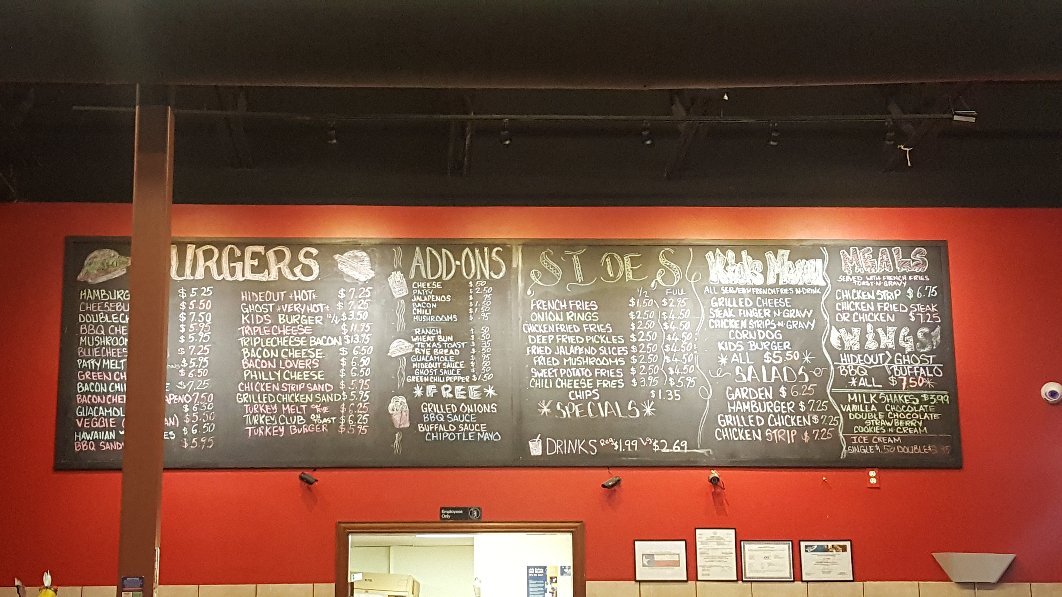 URGERS
HAMBURG $5.25
CHEESEBU $5.50
DOUBLECH $7.50
BBQ CHE $5.75
MUSHROOM
BLUECHEES
PATTY MELT $5.25
GREEN CH
BACON CHI $7.25
BACON CHE APENO 7.50
GUACAMOL $6.50
VEGGIE
HAWAIIAN ES $6.50
BBQ SAND $5.95
HIDEOUT HOT $7.25
GHOST VERY HOT
KIDS BURGER 1/4 $3.50
TRIPLE CHEESE $11.75
TRIPLECHEESE BACON $13.75
BACON CHEESE $6.50
BACON LOVERS $7.25
PHILLY CHEESE $6.50
CHICKEN STRIP SAND $5.75
GRILLED CHICKEN SAND $5.75
TURKEY MELT $6.25
TURKEY CLUB $6.25
TURKEY BURGER $5.75
ADD-ONS
CHEESE .50
PATTY $2.50
JALAPENOS
BACON
CHILI
MUSHROOMS
RANCH
WHEAT BUN
TEXAS TOAST
RYE BREAD
GUACAMOLE
HIDEOUT SAUCE
GHOST SAUCE
GREEN CHILI PEPPER $1.50
*FREE*
GRILLED ONIONS
BBQ SAUCE
BUFFALO SAUCE
CHIPOTLE MAYO
SIDES
1/2 FULL
FRENCH FRIES $1.50 $2.75
ONION RINGS $2.50 $4.50
CHICKEN FRIED FRIES $2.50 $4.50
DEEP FRIED PICKLES $2.50 $4.50
FRIED JALAPENO SLICES $2.50 $4.50
FRIED MUSHROOMS $2.50 $4.50
SWEET POTATO FRIES $2.50 $4.50
CHILI CHEESE FRIES $3.95 $5.75
CHIPS $1.35
*SPECIALS*
DRINKS REG $1.99 LG $2.69
Kids Menu
ALL SERVED W/ FRENCH FRIES N DRINK
GRILLED CHEESE
STEAK FINGER N GRAVY
CHICKEN STRIPS N GRAVY
CORN DOG
KIDS BURGER
*ALL $5.50*
SALADS
GARDEN $6.25
HAMBURGER $7.25
GRILLED CHICKEN $7.25
CHICKEN STRIP $7.25
MEALS
SERVED WITH FRENCH FRIES
TOAST N GRAVY
CHICKEN STRIP $6.75
CHICKEN FRIED STEAK
OR CHICKEN $7.25
WINGS
HIDEOUT GHOST
BBQ BUFFALO
*ALL $7.50*
MILKSHAKES $3.99
VANILLA CHOCOLATE
DOUBLE CHOCOLATE
STRAWBERRY
COOKIES N CREAM
ICE CREAM
SINGLE $1.50 DOUBLE
Employees
Only